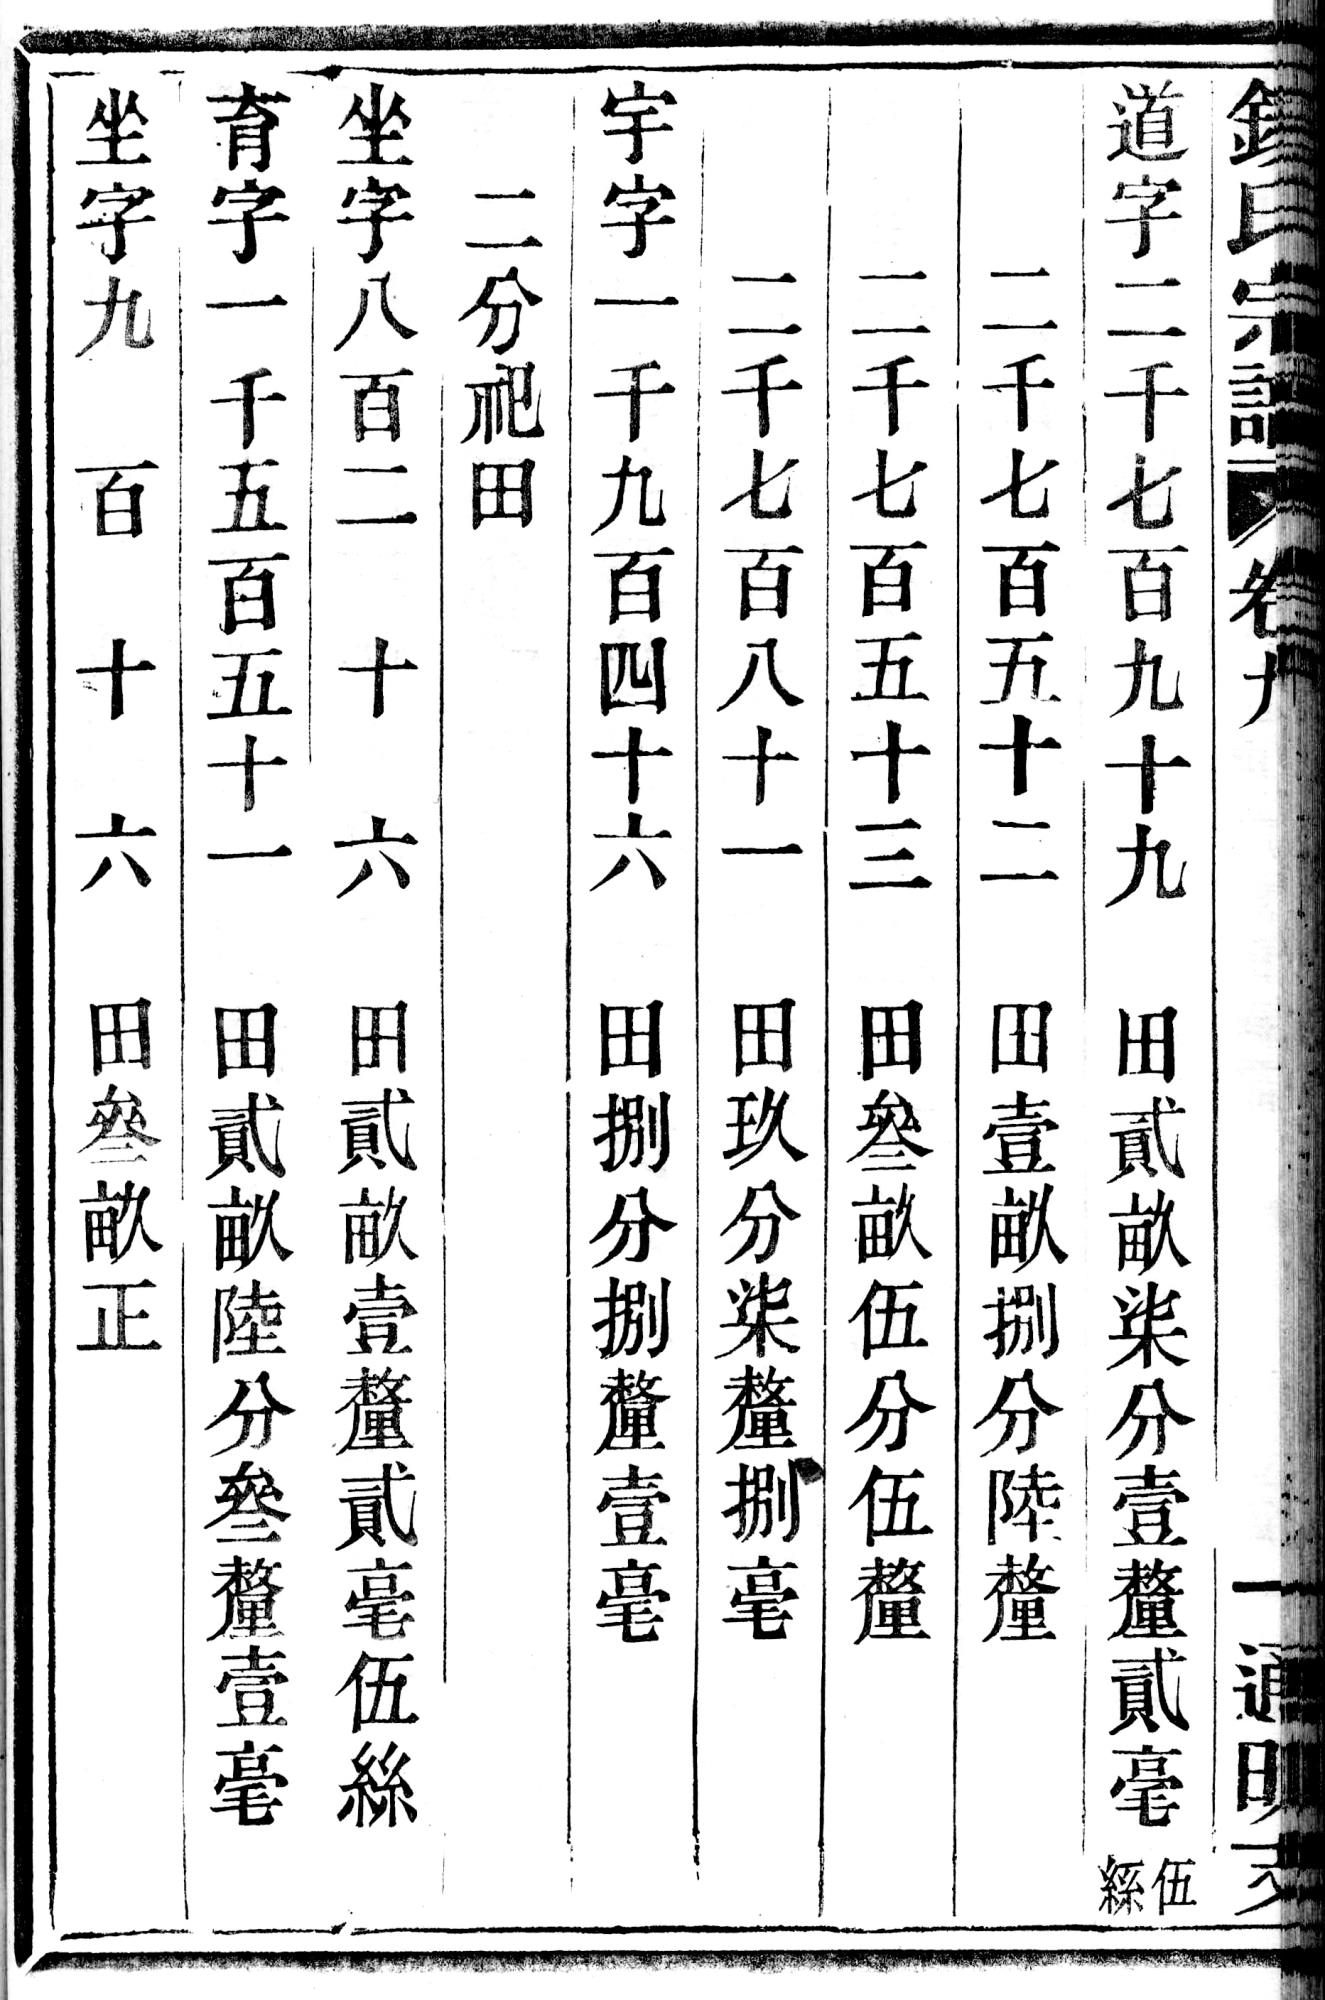 氏宗譜 卷九 一 通明
道字二千七百九十九 田貳畝柒分壹釐貳毫伍絲
二千七百五十二 田壹畝捌分陸釐
二千七百五十三 田叄畝伍分伍釐
二千七百八十一 田玖分柒釐捌毫
宇字一千九百四十六 田捌分捌釐壹毫
二分祀田
坐字八百二十六 田貳畝壹釐貳毫伍絲
育字一千五百五十一 田貳畝陸分叄釐壹毫
坐字九百十六 田叄畝正